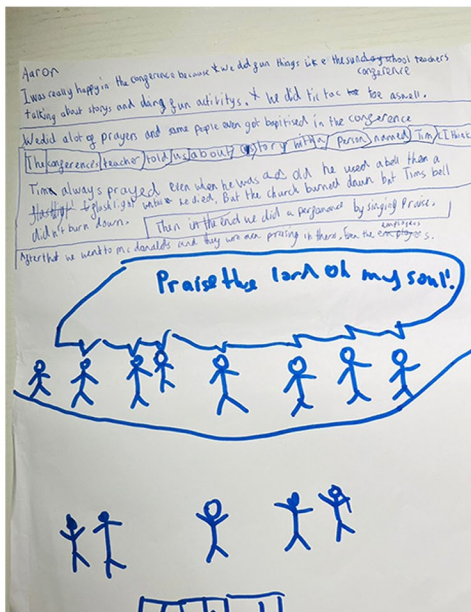 Aaron
I was really happy in the conference because * we did fun things like the sunday school teachers
conference
talking about storys and doing fun activitys. * We did tic tac toe aswell.
We did a lot of prayers and some people even got baptised in the conference
The conferences teacher told us about a story with a person named Tim I think
Tim always prayed even when he was old he used a bell then a
flashlight until he died. But the church burned down but Tims bell
didn't burn down. Then in the end we did a performance by singing Praise.
After that we went to mcdonalds and they were praising in there. Even the employees.
employees
Praise the lord oh my soul!